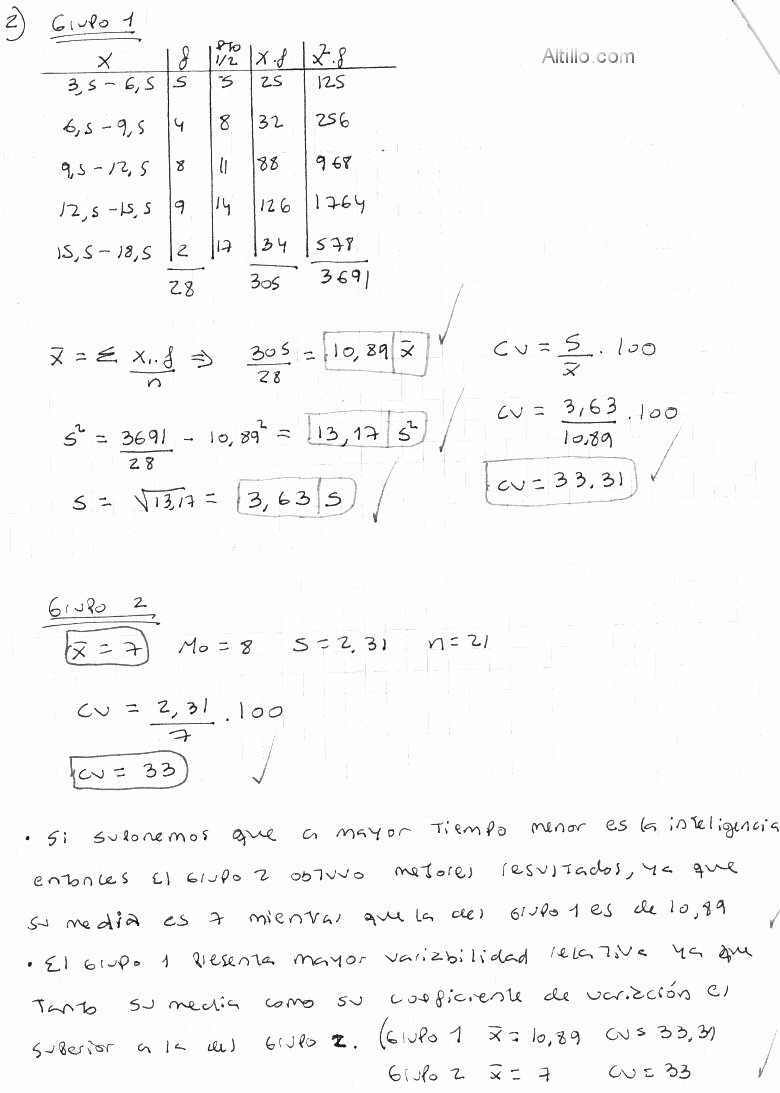 2) Grupo 1
Altillo.com
X f PTO 1/2 X.f X².f
3,5 - 6,5 5 5 25 125
6,5 - 9,5 4 8 32 256
9,5 - 12,5 8 11 88 968
12,5 - 15,5 9 14 126 1764
15,5 - 18,5 2 17 34 578
28 305 3691
x̄ = Σ x.f / n ⇒ 305 / 28 = 10,89 | x̄
S² = 3691 / 28 - 10,89² = 13,17 | S²
S = √13,17 = 3,63 | S
CV = S / x̄ . 100
CV = 3,63 / 10,89 . 100
CV = 33,31
Grupo 2
x̄ = 7 Mo = 8 S = 2,31 n = 21
CV = 2,31 / 7 . 100
CV = 33
• Si suponemos que a mayor tiempo menor es la inteligencia
entonces el grupo 2 obtuvo mejores resultados, ya que
su media es 7 mientras que la del grupo 1 es de 10,89
• El grupo 1 presenta mayor variabilidad relativa ya que
tanto su media como su coeficiente de variación es
superior a la del grupo 2. (Grupo 1 x̄ = 10,89 CV = 33,31
Grupo 2 x̄ = 7 CV = 33